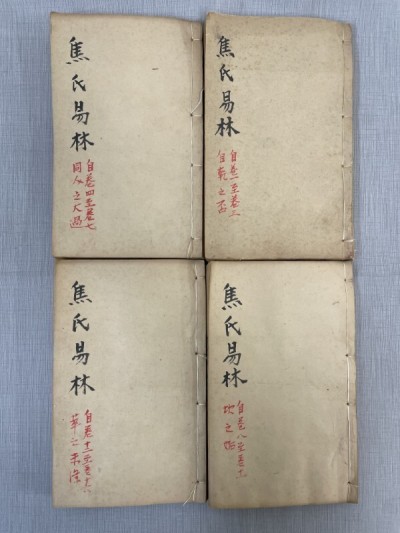 焦氏易林
自卷一至卷三
自乾之否
焦氏易林
自卷四至卷七
同人之大過
焦氏易林
自卷八至卷十一
坎之姤
焦氏易林
自卷十二至卷十六
萃之未濟